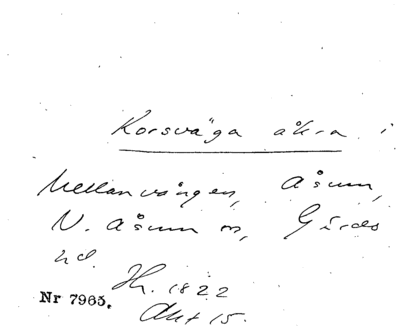 Korsväga åkra i
Mellanvången, Åsum,
N. Åsum sn, Gärds
hd.
Hr. 1822
Akt 15.
Nr 7965.